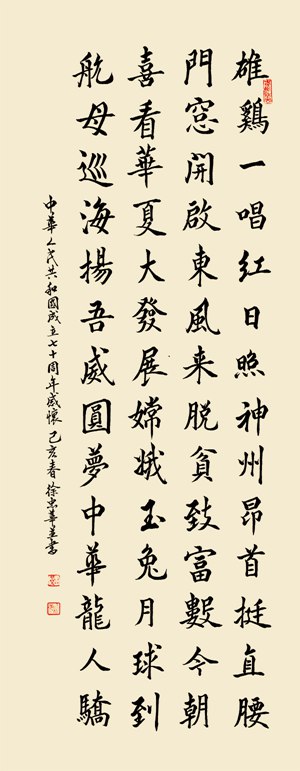 雄鷄一唱紅日照神州昂首挺直腰
門窓開啟東風来脱貧致富數今朝
喜看華夏大發展嫦娥玉兔月球到
航母巡海揚吾威圓夢中華龍人驕
中華人民共和國成立七十周年感懷己亥春徐忠華並書